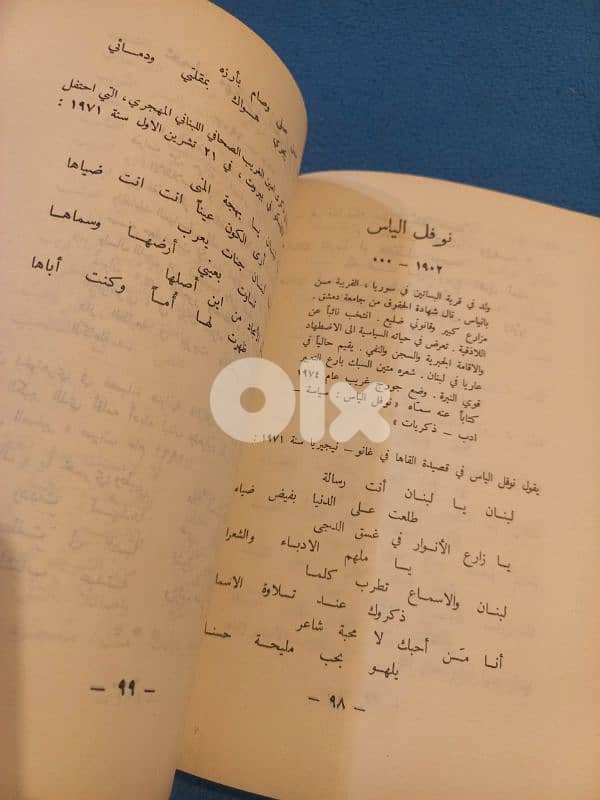 نوفل الياس
١٩٠٢ — ٠٠٠
ولد في قرية البساتين في سوريا ، القريبة من
بانياس . نال شهادة الحقوق من جامعة دمشق .
مزارع كبير وقانوني ضليع . انتخب نائباً عن
اللاذقية . تعرض في حياته السياسية الى الاضطهاد
والاقامة الجبرية والسجن والنفي . يقيم حالياً في
عاريا في لبنان . شعره متين السبك بارع التعبير
قوي النبرة . وضع جورج غريب عام ١٩٧٤
كتاباً عنه سمّاه « نوفل الياس : سياسة —
ادب — ذكريات »
يقول نوفل الياس في قصيدة القاها في غانو — نيجيريا سنة ١٩٧١ :
لبنان يا لبنان أنت رسالة
طلعت على الدنيا بفيض ضياء
يا زارع الأنوار في غسق الدجى
يا ملهم الادباء والشعرا
لبنان والاسماع تطرب كلما
ذكروك عند تلاوة الاسما
أنا مَن أحبك لا محبة شاعر
يلهو بحب مليحة حسنا
— ٩٨ —
وصام بأرزه
هواك بمقلتي ودمائي
الغريب الصحافي اللبناني المهجري ، التي احتفل
في بيروت ، في ٢١ تشرين الاول سنة ١٩٧١ :
يا بهجة المنى
أرى الكون عيناً انت انت ضياها
جنات يعرب
بعيني أرضها وسماها
من اين أصلها
لها أماً وكنت أباها
— ٩٩ —
OLX